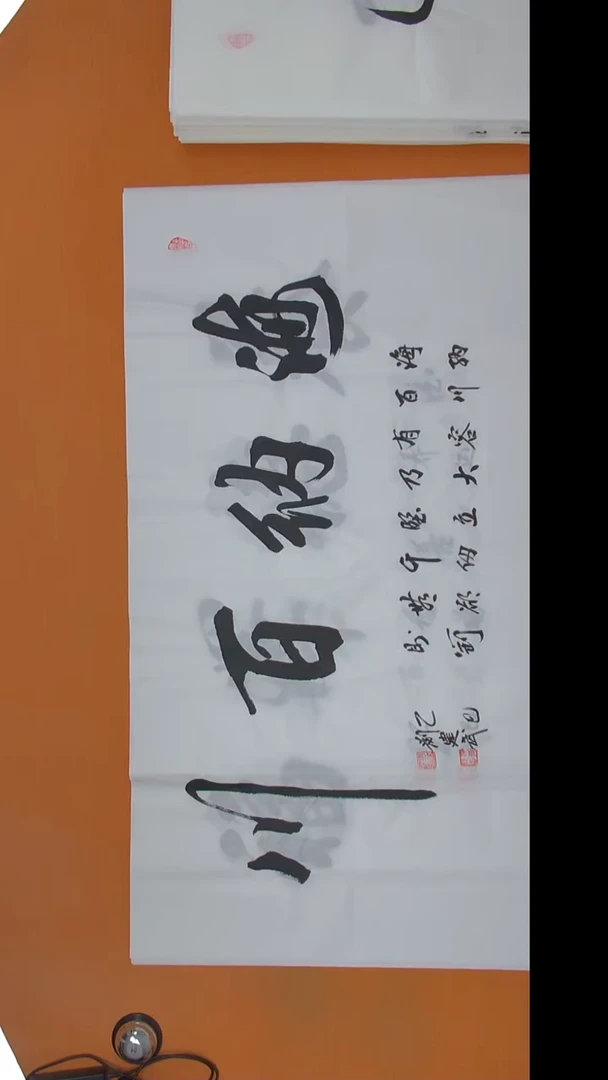 海纳百川
海纳
百川
有容
乃大
壁立
千仞
無欲
則剛
乙巳